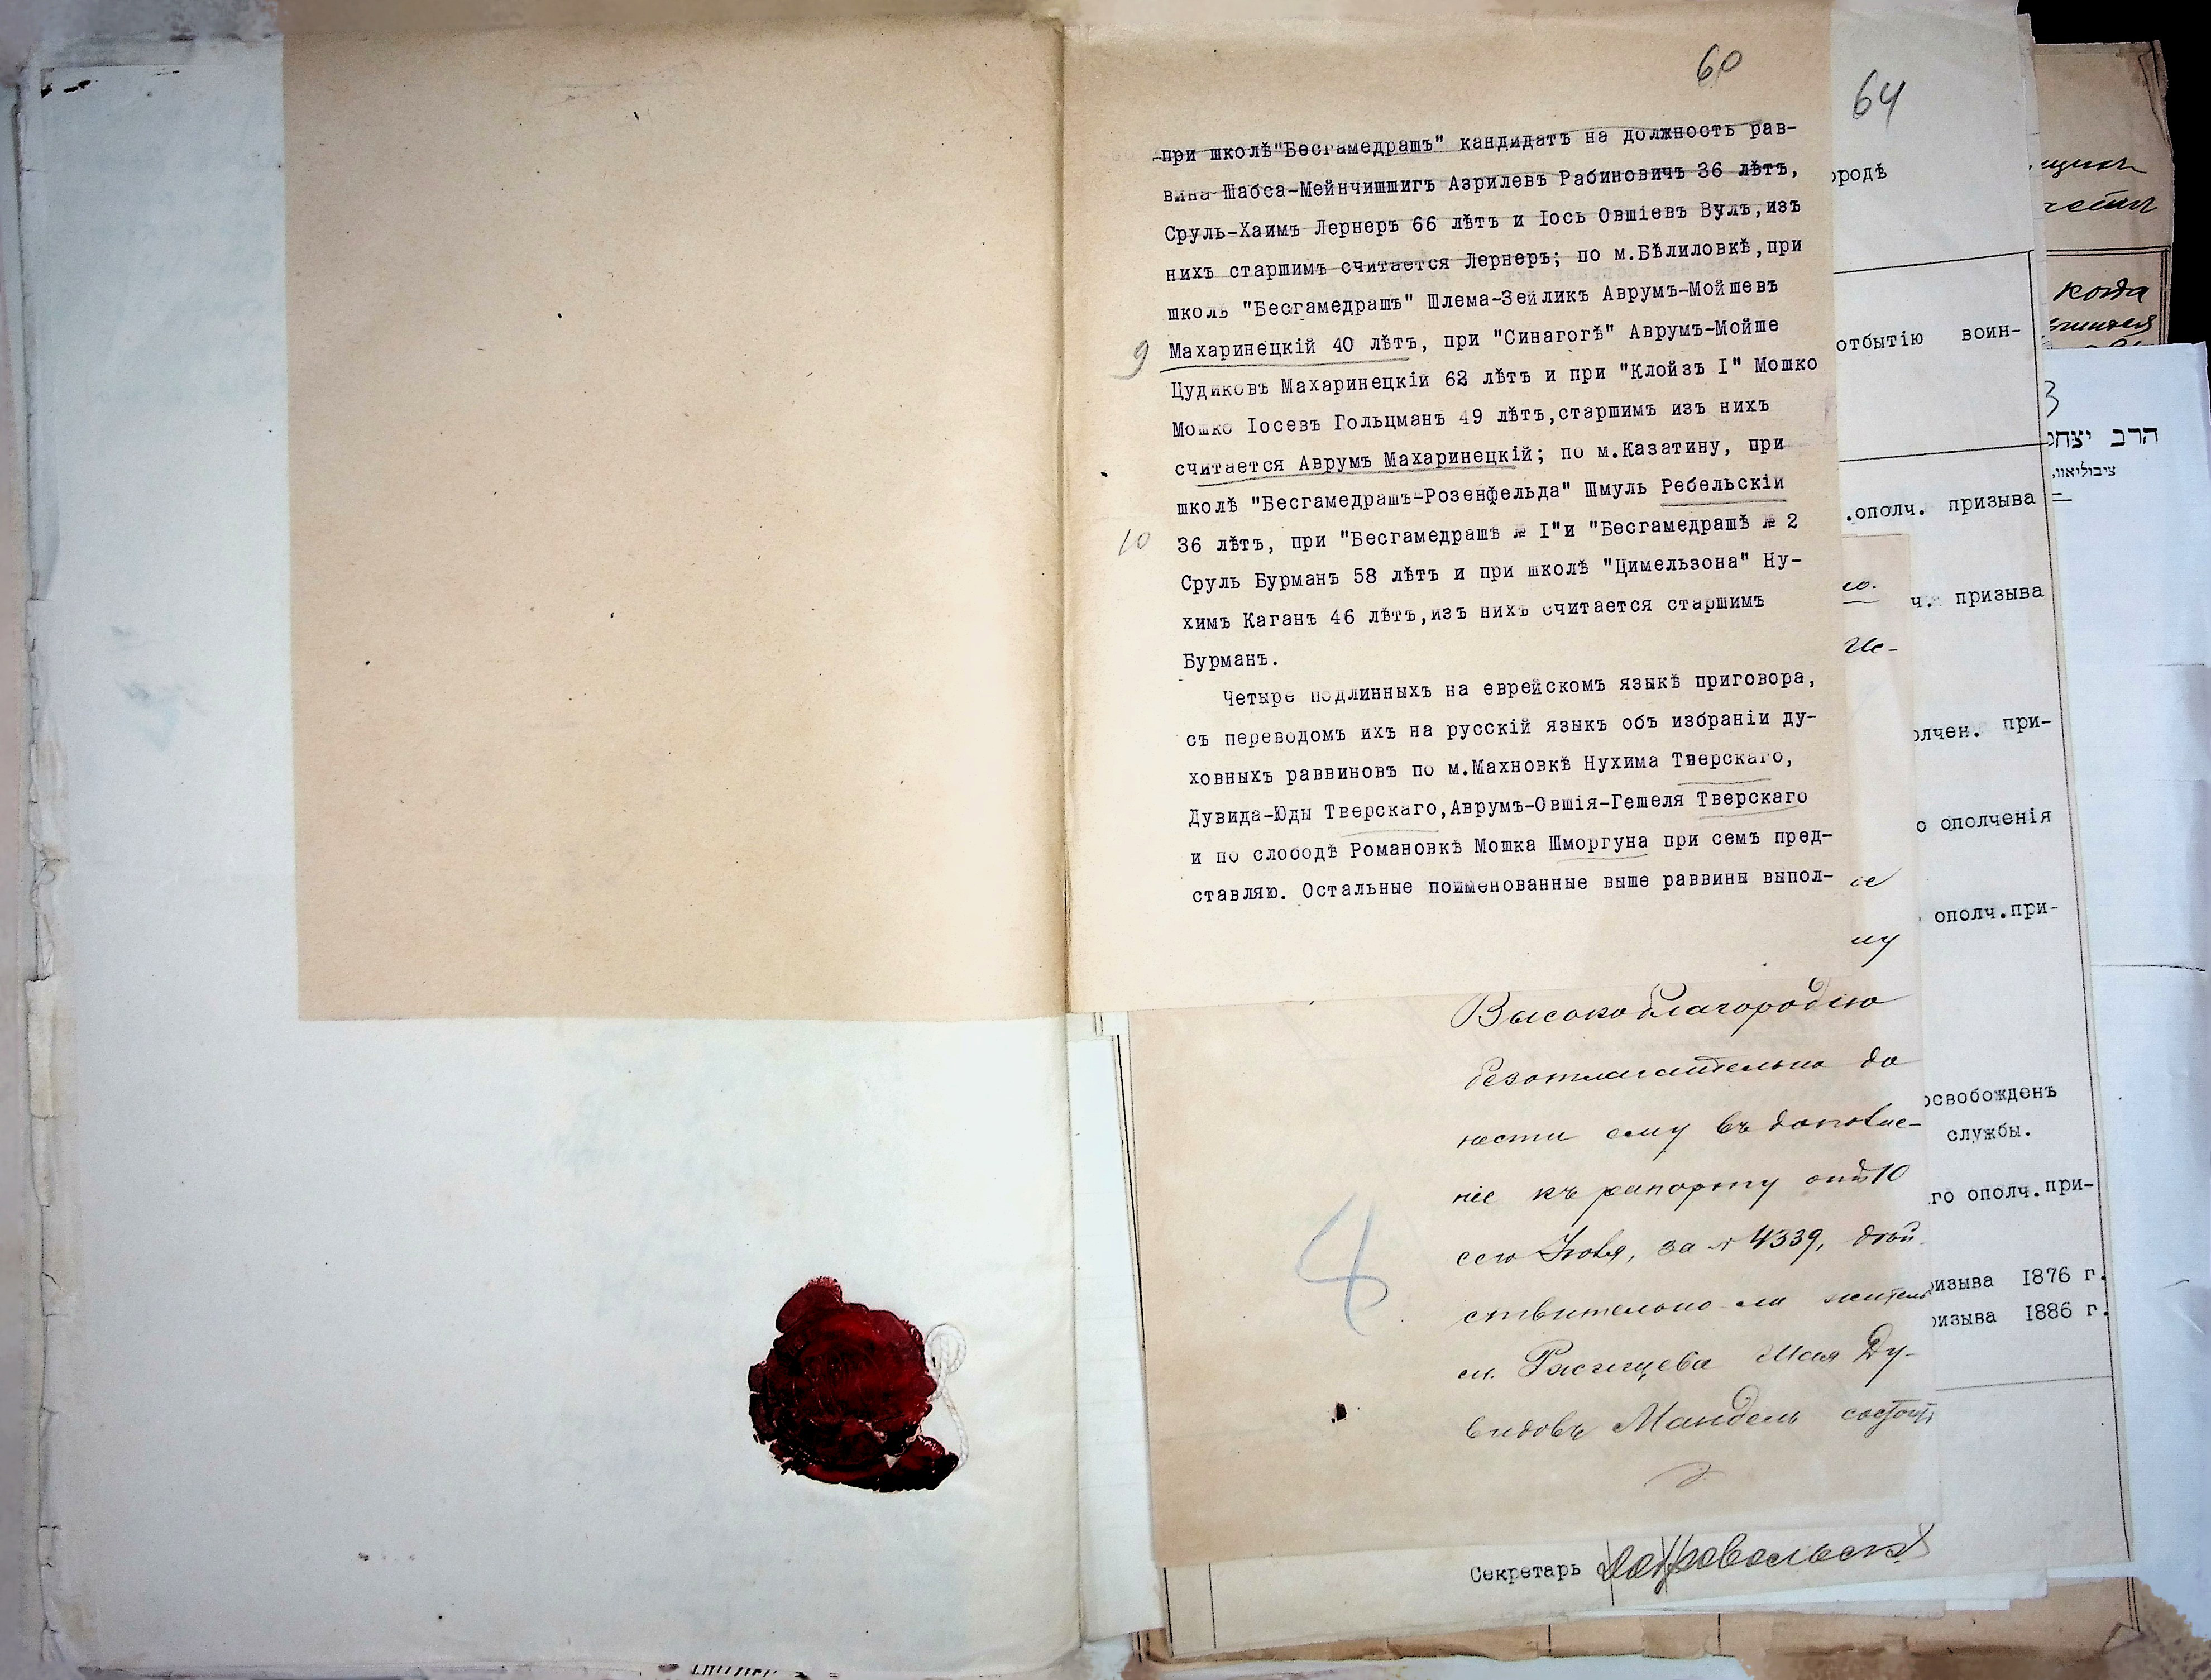 60
при школѣ"Бесгамедрашъ" кандидатъ на должность рав-
вина Шабса-Мейнчишшигъ Азрилевъ Рабиновичъ 36 лѣтъ,
Сруль-Хаимъ Лернеръ 66 лѣтъ и Іось Овшіевъ Вулъ,изъ
нихъ старшимъ считается Лернеръ; по м.Бѣлиловкѣ,при
школѣ "Бесгамедрашъ" Шлема-Зейликъ Аврумъ-Мойшевъ
9 Махаринецкій 40 лѣтъ, при "Синагогѣ" Аврумъ-Мойше
Цудиковъ Махаринецкій 62 лѣтъ и при "Клойзъ I" Мошко
Мошко Іосевъ Гольцманъ 49 лѣтъ,старшимъ изъ нихъ
считается Аврумъ Махаринецкій; по м.Казатину, при
школѣ "Бесгамедрашъ-Розенфельда" Шмуль Ребельскій
10 36 лѣтъ, при "Бесгамедрашѣ № I"и "Бесгамедрашѣ № 2
Сруль Бурманъ 58 лѣтъ и при школѣ "Цимельзона" Ну-
химъ Каганъ 46 лѣтъ,изъ нихъ считается старшимъ
Бурманъ.
Четыре подлинныхъ на еврейскомъ языкѣ приговора,
съ переводомъ ихъ на русскій языкъ объ избраніи ду-
ховныхъ раввиновъ по м.Махновкѣ Нухима Тверскаго,
Дувида-Юды Тверскаго,Аврумъ-Овшія-Гешеля Тверскаго
и по слободѣ Романовкѣ Мошка Шморгуна при семъ пред-
ставляю. Остальные поименованные выше раввины выпол-
64
ородѣ
отбытію воин-
.ополч. призыва
ч. призыва
олчен. при-
о ополченія
ополч.при-
освобожденъ
службы.
го ополч.при-
призыва 1876 г.
призыва 1886 г.
когда
הרב יצחק
ציבוליאוו,
му
Высокоблагородію
безотлагательно до
нести ему въ дополне-
ніе къ рапорту отъ 10
сего Іюля, за № 4339, дѣй
ствительно ли житель
м. Ржищева Мая Ду-
видовъ Мандель состоитъ
8
Секретарь